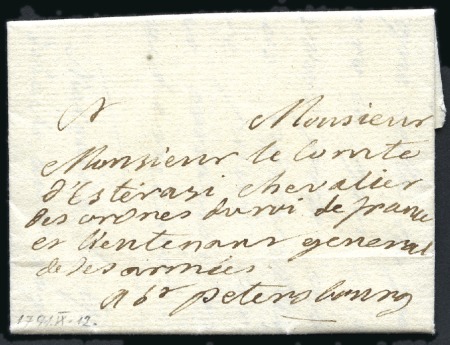 A Monsieur
Monsieur le Comte
d'Estérazi chevalier
des ordres du roi de france
et lieutenant general
de ses armées
A St petersbourg